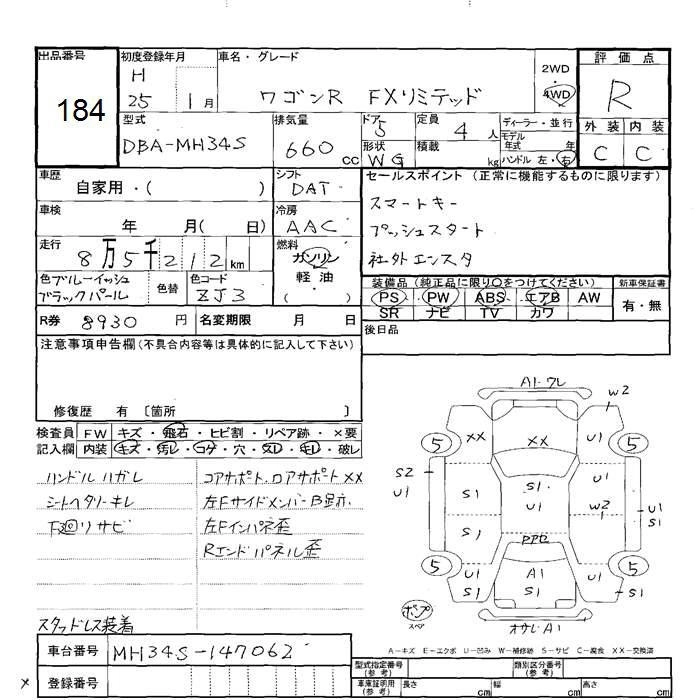 出品番号
184
初度登録年月
H
25 1月
車名・グレード
ワゴンR FXリミテッド
2WD
4WD
評価点
R
外装 内装
C C
型式
DBA-MH34S
排気量
660 cc
ドア
5
定員
4 人
形状
WG
積載
kg
ディーラー・並行
モデル
年式 年
ハンドル 左・右
車歴
自家用・( )
シフト
DAT
車検
年 月( 日)
冷房
AAC
走行
8万5千212 km
燃料
ガソリン
軽油
( )
色ブルーイッシュ
ブラックパール
色替
色コード
ZJ3
セールスポイント (正常に機能するものに限ります)
スマートキー
プッシュスタート
社外エンスタ
装備品 (純正品に限り○をつけてください)
PS PW ABS エアB AW
SR ナビ TV カワ
新車保証書
有・無
R券 8930 円
名変期限 月 日
後日品
注意事項申告欄(不具合内容等は具体的に記入して下さい)
修復歴 有 〔箇所 〕
検査員 FW キズ・飛石・ヒビ割・リペア跡・×要
記入欄 内装 キズ・汚レ・コゲ・穴・スレ・キレ・破レ
ハンドルハガレ
シートヘタリ・キレ
下廻リサビ
スタッドレス装着
コアサポート、ロアサポートXX
左Fインパネ歪
Rエンドパネル歪
A1・ワレ
W2
XX XX U1
5 5
S2
U1
S1 S1 U1
W2
U1
S1
S1 S1
5 5
U1 A1 U1
S1 S1
S1
スペア
A1
A-キズ E-エクボ U-凹み W-補修跡 S-サビ C-腐食 XX-交換済
車台番号 MH34S-147062
登録番号
型式指定番号
(参考)
類別区分番号
(参考)
車庫証明用
(参考)
長さ cm 幅 cm 高さ cm